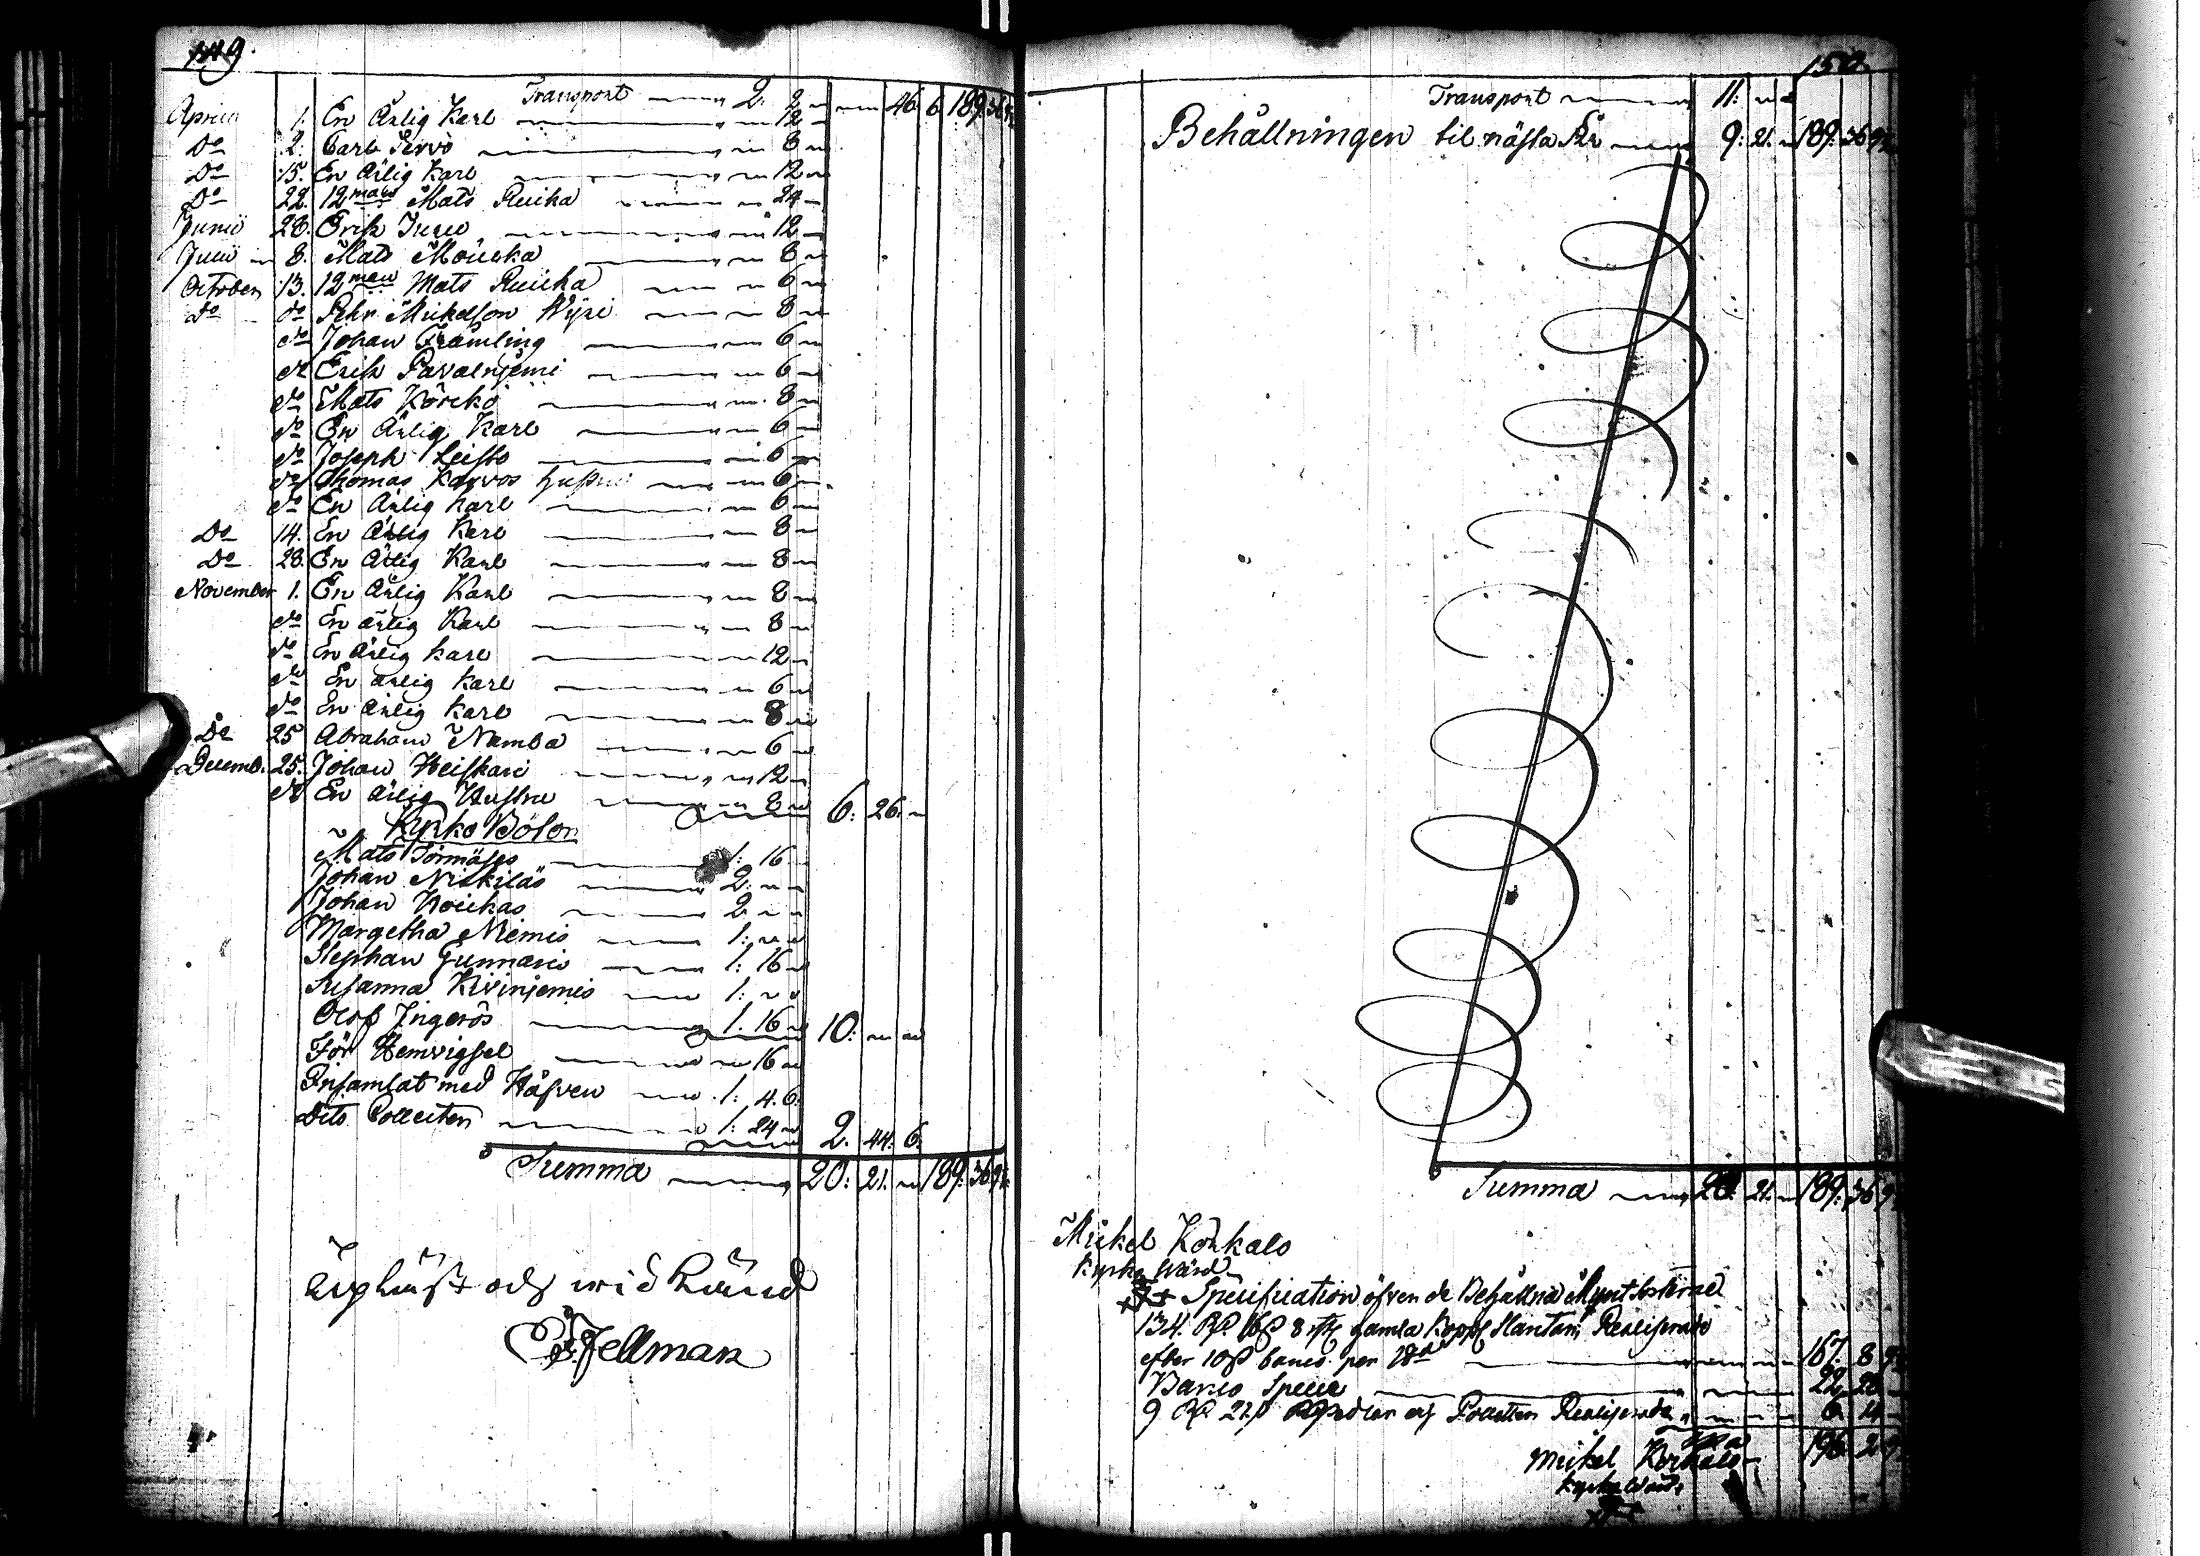 149.
Transport 2. 2 46. 6 189. 36
Aprill 1. En Ärlig Karl 12
Do 2. Carl Servo 8
Do 15. En Ärlig Karl 12
Do 22. 12man Mats Ruika 24
Junii 28. Erik 12
Julii 8. Mats 8
October 13. 12man Mats Ruika 6
do do Pehr Mickelson Nysi 8
do Johan Främling 6
do Erik Pavalnjemi 6
do Mats Körckö 8
do En Ärlig Karl 6
do Joseph Leisto 6
do Thomas Karvos hustru 6
do En Ärlig Karl 6
Do 14. En Ärlig Karl 8
Do 28. En Ärlig Karl 8
November 1. En Ärlig Karl 8
do En ärlig Karl 8
do En Ärlig Karl 12
do En ärlig Karl 6
do En ärlig Karl 8
Do 25 Abraham Namba 6
Decemb. 25. Johan Heiskari 12
do En ärlig Hustru 8 6. 26.
Kyrko Böter
Mats 1: 16
Johan Niskiläs 2:
Johan Koickas 2
Margetha Niemis 1:
Stephan Gunnaris 1: 16
Susanna Kivinjemis 1:
Olof Ingerös 1. 16 10:
För Hemvigsel 16
Insamlat med Håfven 1: 4. 6.
Dito Collecten 1: 24 2. 44. 6.
Summa 20: 21. 189. 36
wid hand
Fellman
150.
Transport 11:
Behållningen til nästa År 9: 21. 189: 36
Summa 20. 21. 189. 36
Mickel Korkalo
Kyrko Wärd
Specification öfven de Behållna Myntsorterne
134. Rd. 16 s 8 gamla Kopp. Slantar Realiserade
efter 10 s banco per 167. 8
Banco Specie 22. 28
9 Rd. 21 s Collecten Realiserade 6.
196. 2
Mickel Korkalo
Kyrko Wärd